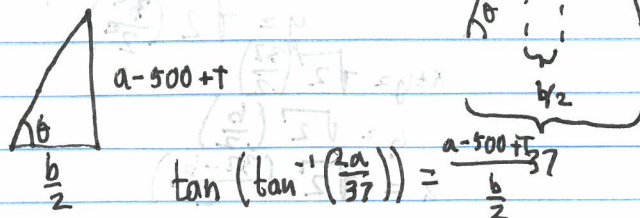 θ
b/2
a-500+T
θ
b/2
37
tan(tan⁻¹(2a/37)) = (a-500+T)/(b/2)